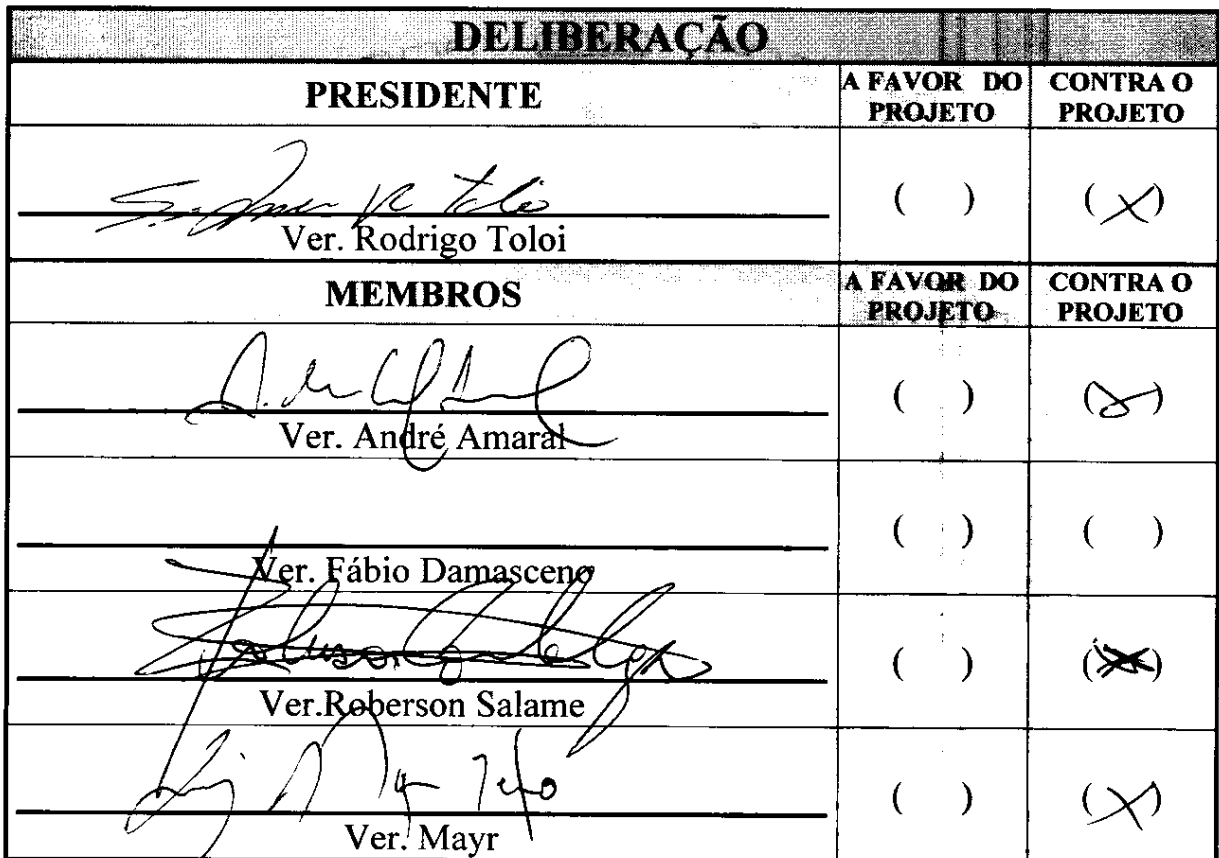 DELIBERAÇÃO
PRESIDENTE
A FAVOR DO PROJETO
CONTRA O PROJETO
( ) (X)
Ver. Rodrigo Toloi
MEMBROS
A FAVOR DO PROJETO
CONTRA O PROJETO
( ) (X)
Ver. André Amaral
( ) ( )
Ver. Fábio Damasceno
( ) (X)
Ver.Roberson Salame
( ) (X)
Ver. Mayr